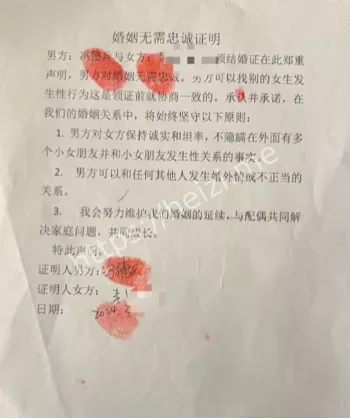 婚姻无需忠诚证明
男方:冯德兵与女方: 领结婚证在此郑重
声明,男方对婚姻无需忠诚。男方可以找别的女生发
生性行为这是领证前就协商一致的。承认并承诺,在
我们的婚姻关系中,将始终坚守以下原则:
1. 男方对女方保持诚实和坦率,不隐瞒在外面有多
个小女朋友并和小女朋友发生性关系的事实。
2. 男方可以和任何其他人发生婚外情或不正当的
关系。
3. 我会努力维护我们婚姻的延续,与配偶共同解
决家庭问题,共同成长。
特此声明。
证明人男方:
证明人女方:
日期:
https://heizi.me